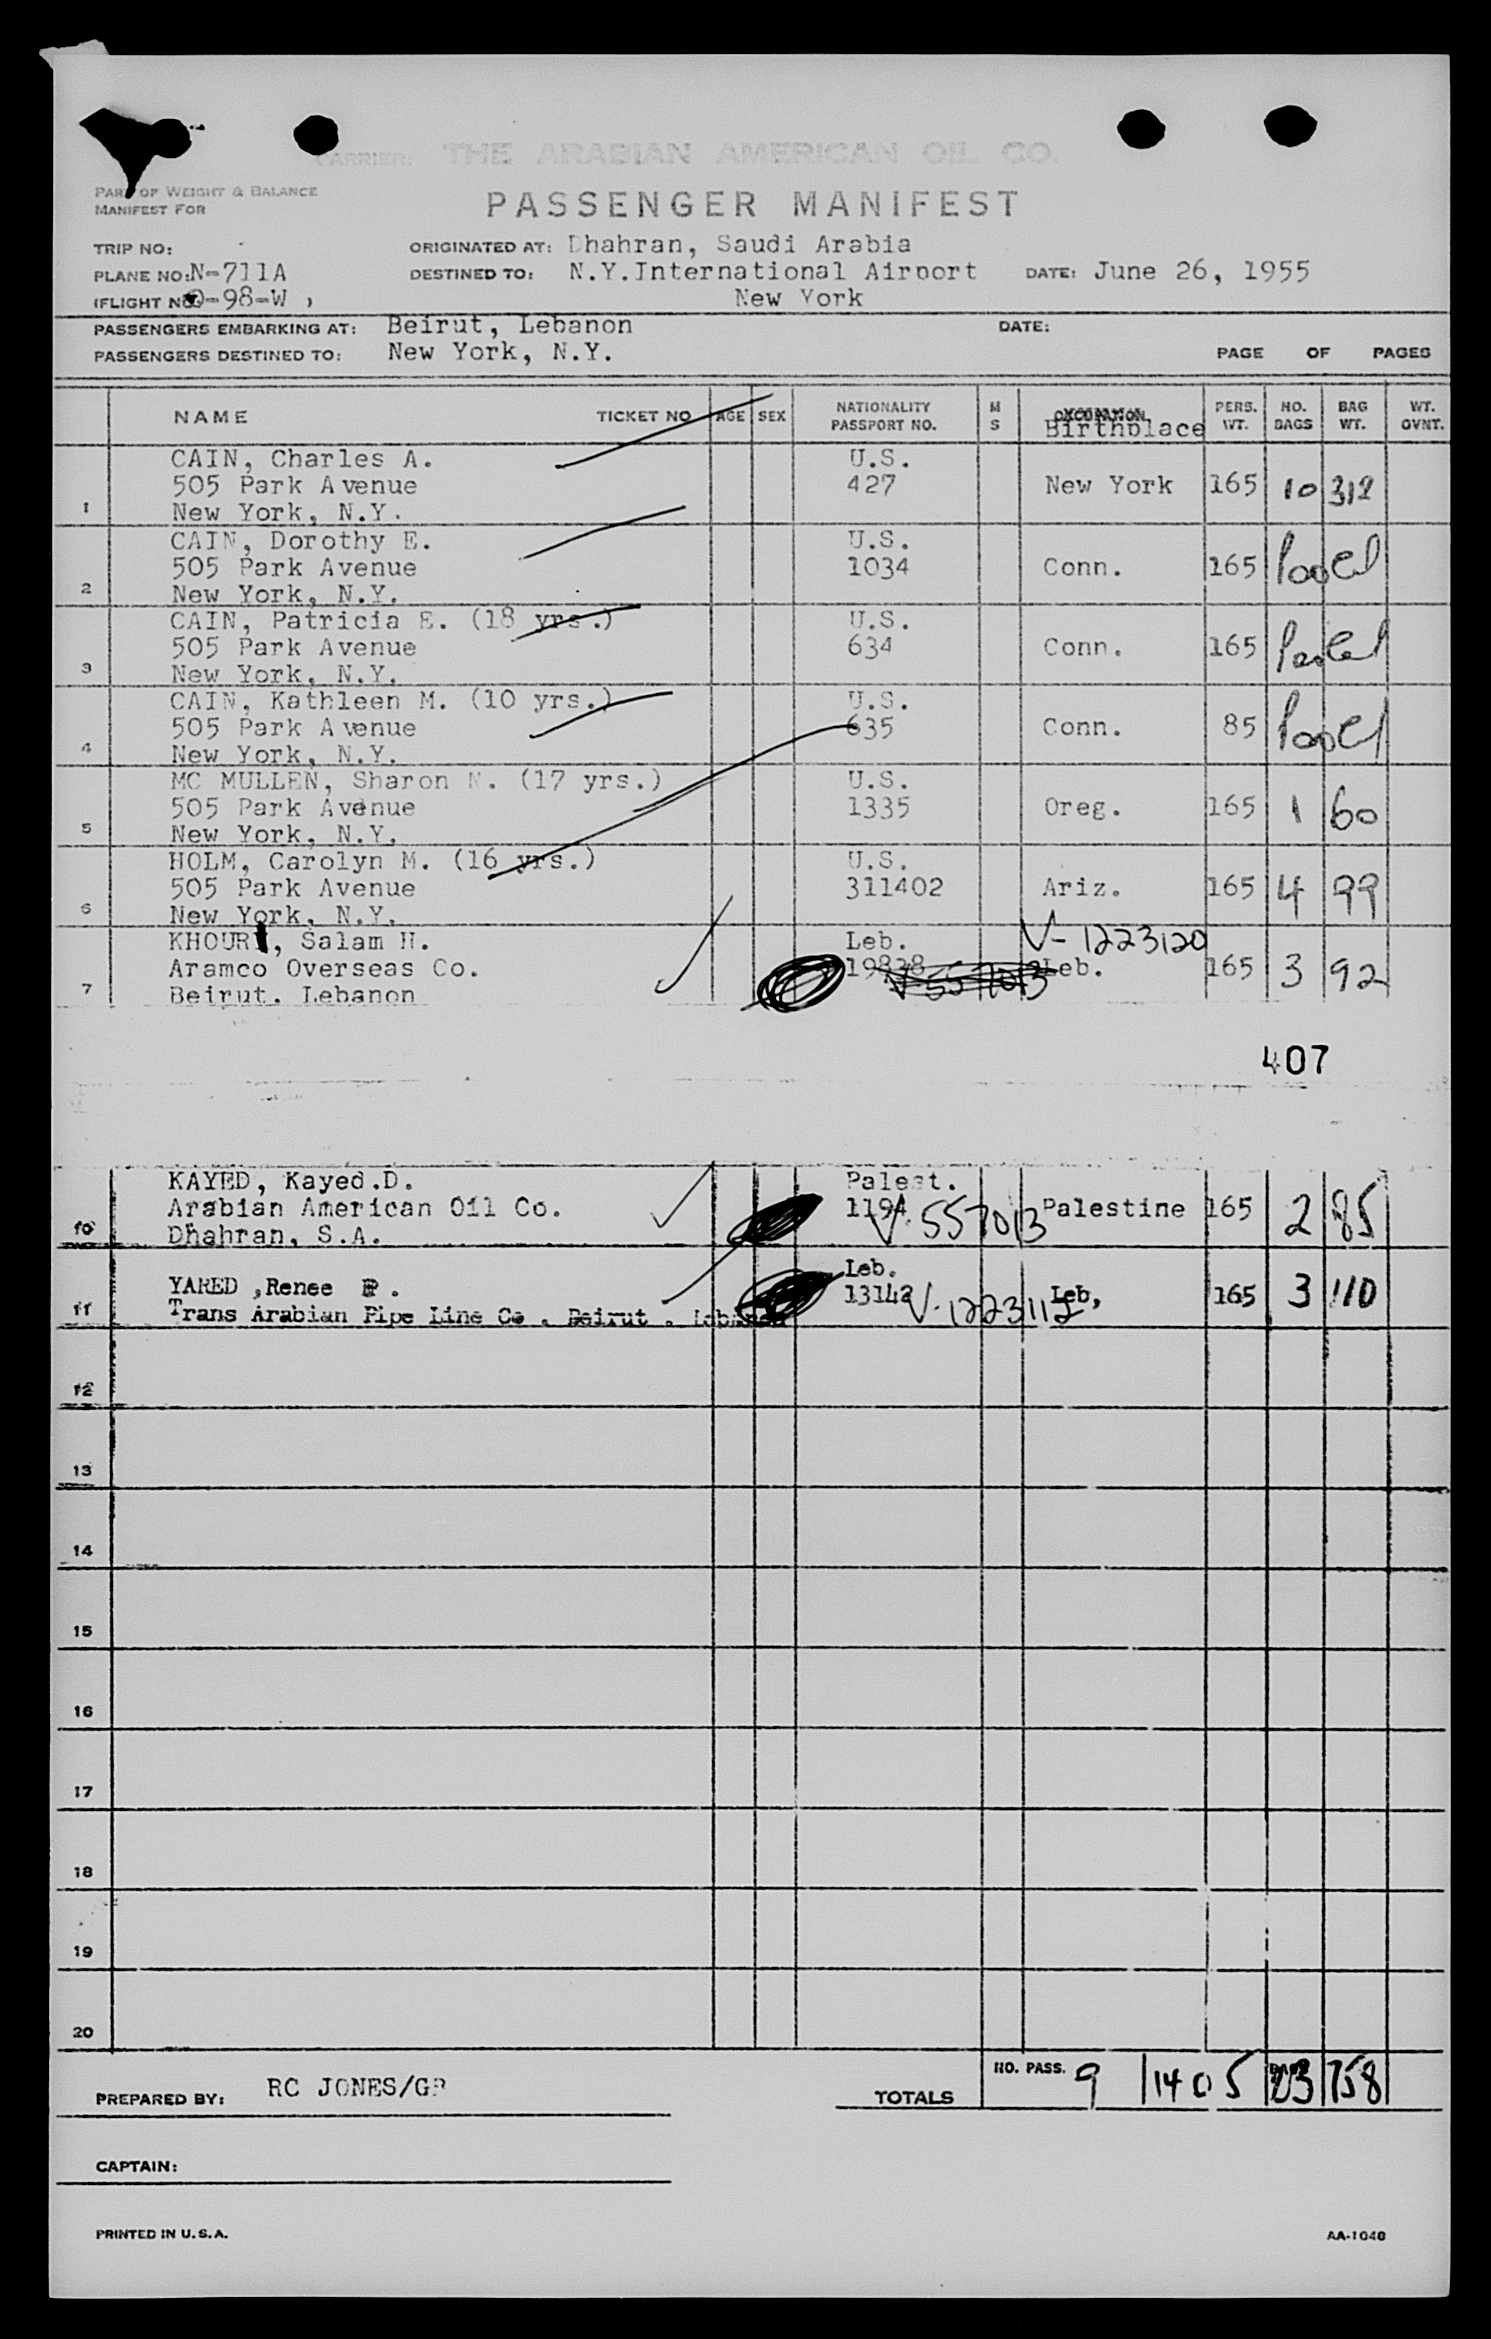 CARRIER: THE ARABIAN AMERICAN OIL CO.
PART OF WEIGHT & BALANCE
MANIFEST FOR
PASSENGER MANIFEST
TRIP NO:
ORIGINATED AT: Dhahran, Saudi Arabia
PLANE NO: N-711A
DESTINED TO: N.Y.International Airport DATE: June 26, 1955
(FLIGHT NO. O-98-W )
New York
PASSENGERS EMBARKING AT: Beirut, Lebanon DATE:
PASSENGERS DESTINED TO: New York, N.Y. PAGE OF PAGES
NAME TICKET NO AGE SEX NATIONALITY PASSPORT NO. M S Birthplace PERS. WT. NO. BAGS BAG WT. WT. OVNT.
CAIN, Charles A. U.S.
505 Park Avenue 427 New York 165 10 312
1 New York, N.Y.
CAIN, Dorothy E. U.S.
505 Park Avenue 1034 Conn. 165 Pooled
2 New York, N.Y.
CAIN, Patricia E. (18 yrs.) U.S.
505 Park Avenue 634 Conn. 165 Pooled
3 New York, N.Y.
CAIN, Kathleen M. (10 yrs.) U.S.
505 Park Avenue 635 Conn. 85 Pooled
4 New York, N.Y.
MC MULLEN, Sharon N. (17 yrs.) U.S.
505 Park Avenue 1335 Oreg. 165 1 60
5 New York, N.Y.
HOLM, Carolyn M. (16 yrs.) U.S.
505 Park Avenue 311402 Ariz. 165 4 99
6 New York, N.Y.
KHOURI, Salam H. Leb. V-1223120
Aramco Overseas Co. 19838 V 557013 Leb. 165 3 92
7 Beirut. Lebanon
407
KAYED, Kayed.D. Palest.
Arabian American Oil Co. 1194 V. 557013 Palestine 165 2 85
10 Dhahran, S.A.
Leb.
YARED ,Renee P. 13142 V-1223112 Leb, 165 3 110
11 Trans Arabian Pipe Line Co . Beirut . Lebanon
12
13
14
15
16
17
18
19
20
NO. PASS. 9 1405 23 758
PREPARED BY: RC JONES/GR TOTALS
CAPTAIN:
PRINTED IN U.S.A. AA-1040